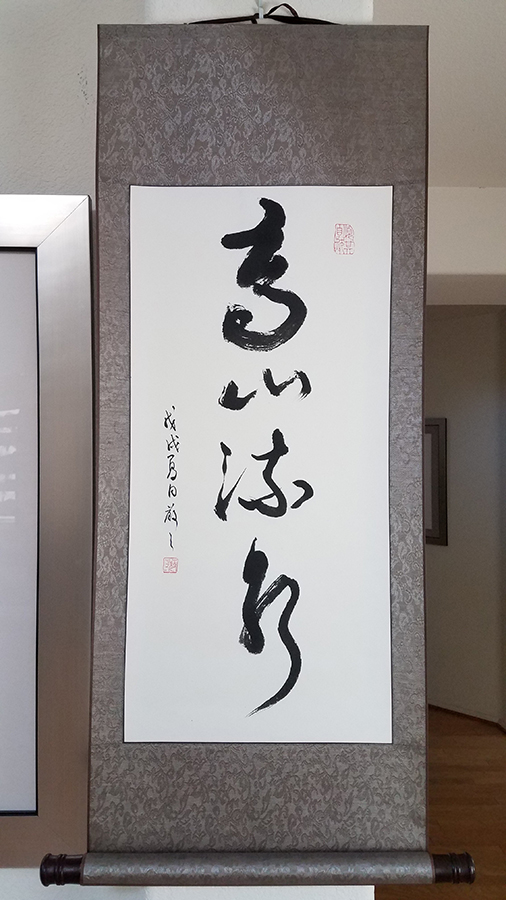 高山流水
戊戌夏日